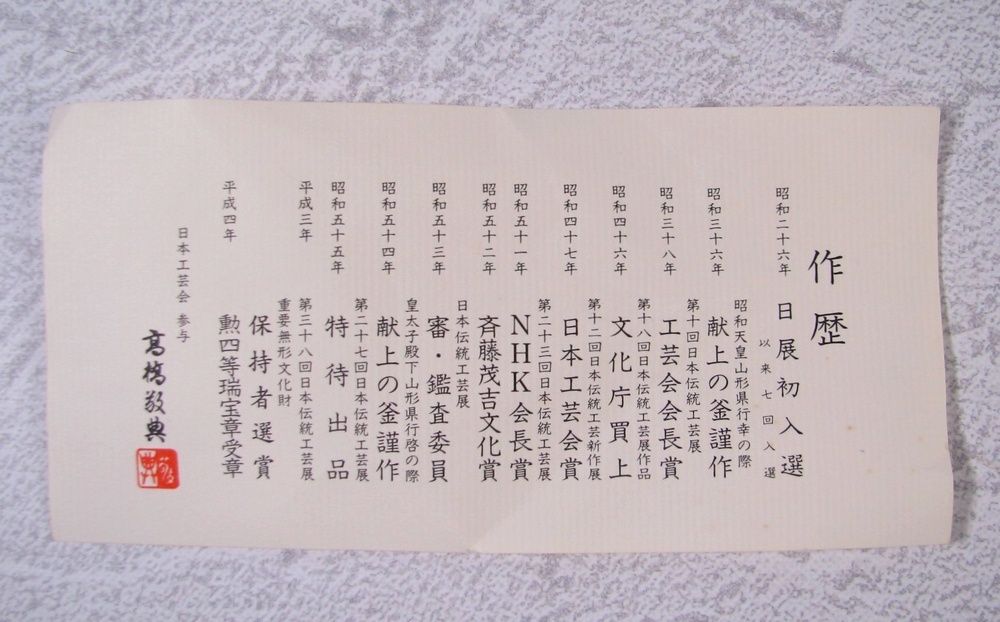 作歴
昭和二十六年 日展初入選
以来七回入選
昭和天皇山形県行幸の際
昭和三十六年 献上の釜謹作
第十回日本伝統工芸展
昭和三十八年 工芸会会長賞
第十八回日本伝統工芸展作品
昭和四十六年 文化庁買上
第十二回日本伝統工芸新作展
昭和四十七年 日本工芸会賞
第二十三回日本伝統工芸展
昭和五十一年 NHK会長賞
昭和五十二年 斉藤茂吉文化賞
日本伝統工芸展
昭和五十三年 審・鑑査委員
皇太子殿下山形県行啓の際
昭和五十四年 献上の釜謹作
第二十七回日本伝統工芸展
昭和五十五年 特待出品
第三十八回日本伝統工芸展
平成三年
重要無形文化財
保持者選賞
平成四年 勲四等瑞宝章受章
日本工芸会 参与
高橋敬典